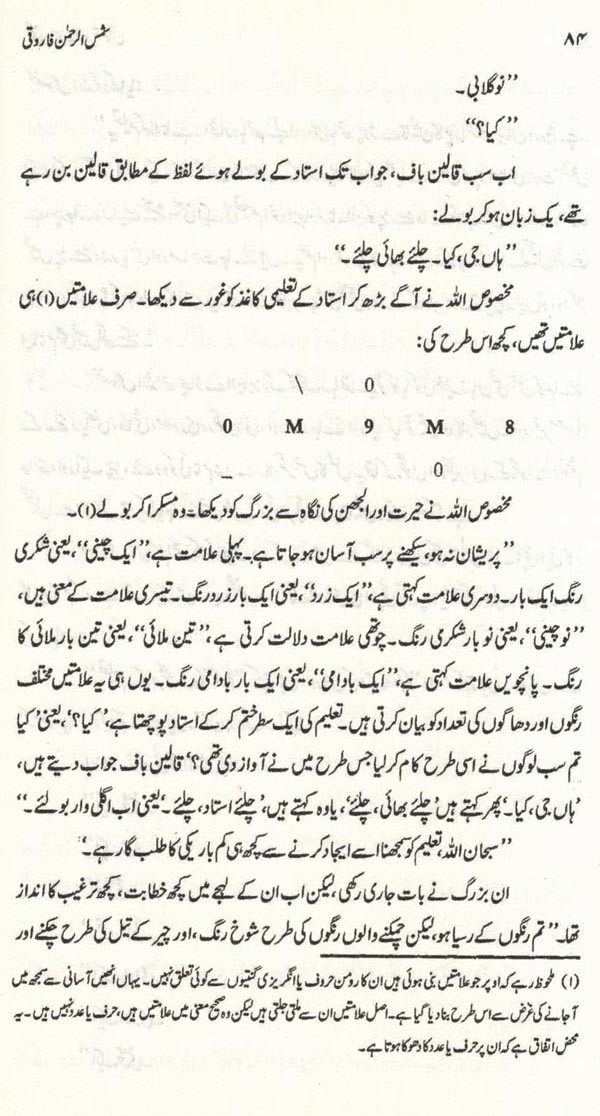 ۸۴ شمس الرحمٰن فاروقی
’’نو گلابی۔
’’کیا؟‘‘
اب سب قالین باف، جو اب تک استاد کے بولے ہوئے لفظ کے مطابق قالین بن رہے
تھے، یک زبان ہو کر بولے:
’’ہاں جی، کیا۔ چلئے بھائی چلئے۔‘‘
مخصوص اللہ نے آگے بڑھ کر استاد کے تعلیمی کاغذ کو غور سے دیکھا۔ صرف علامتیں (۱) ہی
علامتیں تھیں، کچھ اس طرح کی:
\ 0
0 M 9 M 8
_ 0
مخصوص اللہ نے حیرت اور الجھن کی نگاہ سے بزرگ کو دیکھا۔ وہ مسکرا کر بولے (۱)۔
’’پریشان نہ ہو، سیکھنے پر سب آسان ہو جاتا ہے۔ پہلی علامت ہے، ’’ایک چینی‘‘، یعنی شکری
رنگ ایک بار۔ دوسری علامت کہتی ہے، ’’ایک زرد‘‘، یعنی ایک بار زرد رنگ۔ تیسری علامت کے معنی ہیں،
’’نو چینی‘‘، یعنی نو بار شکری رنگ۔ چوتھی علامت دلالت کرتی ہے، ’’تین ملائی‘‘، یعنی تین بار ملائی کا
رنگ۔ پانچویں علامت کہتی ہے، ’’ایک بادامی‘‘، یعنی ایک بار بادامی رنگ۔ یوں ہی یہ علامتیں مختلف
رنگوں اور دھاگوں کی تعداد کو بیان کرتی ہیں۔ تعلیم کی ایک سطر ختم کر کے استاد پوچھتا ہے ’کیا؟‘، یعنی ’کیا
تم سب لوگوں نے اسی طرح کام کر لیا جس طرح میں نے آواز دی تھی؟‘ قالین باف جواب دیتے ہیں،
’ہاں جی، کیا۔‘ پھر کہتے ہیں ’چلئے بھائی، چلئے‘، یا وہ کہتے ہیں، ’چلئے استاد، چلئے۔‘ یعنی اب اگلی وار بولئے۔‘‘
’’سبحان اللہ، تعلیم کو سمجھنا اسے ایجاد کرنے سے کچھ ہی کم باریکی کا طلب گار ہے۔‘
ان بزرگ نے بات جاری رکھی، لیکن اب ان کے لہجے میں کچھ خطابت، کچھ ترغیب کا انداز
تھا۔ ’’تم رنگوں کے رسیا ہو، لیکن چمکنے والوں رنگوں کی طرح شوخ رنگ، اور چیر کے تیل کی طرح چکنے اور
(۱) ملحوظ رہے کہ اوپر جو علامتیں بنی ہوئی ہیں ان کا رومن حروف یا انگریزی گنتیوں سے کوئی تعلق نہیں۔ یہاں انھیں آسانی سے سمجھ میں
آ جانے کی غرض سے اس طرح بنا دیا گیا ہے۔ اصل علامتیں ان سے ملتی جلتی ہیں لیکن وہ صحیح معنی میں علامتیں ہیں، حرف یا عدد نہیں ہیں۔ یہ
محض اتفاق ہے کہ ان پر حرف یا عدد کا دھوکا ہوتا ہے۔